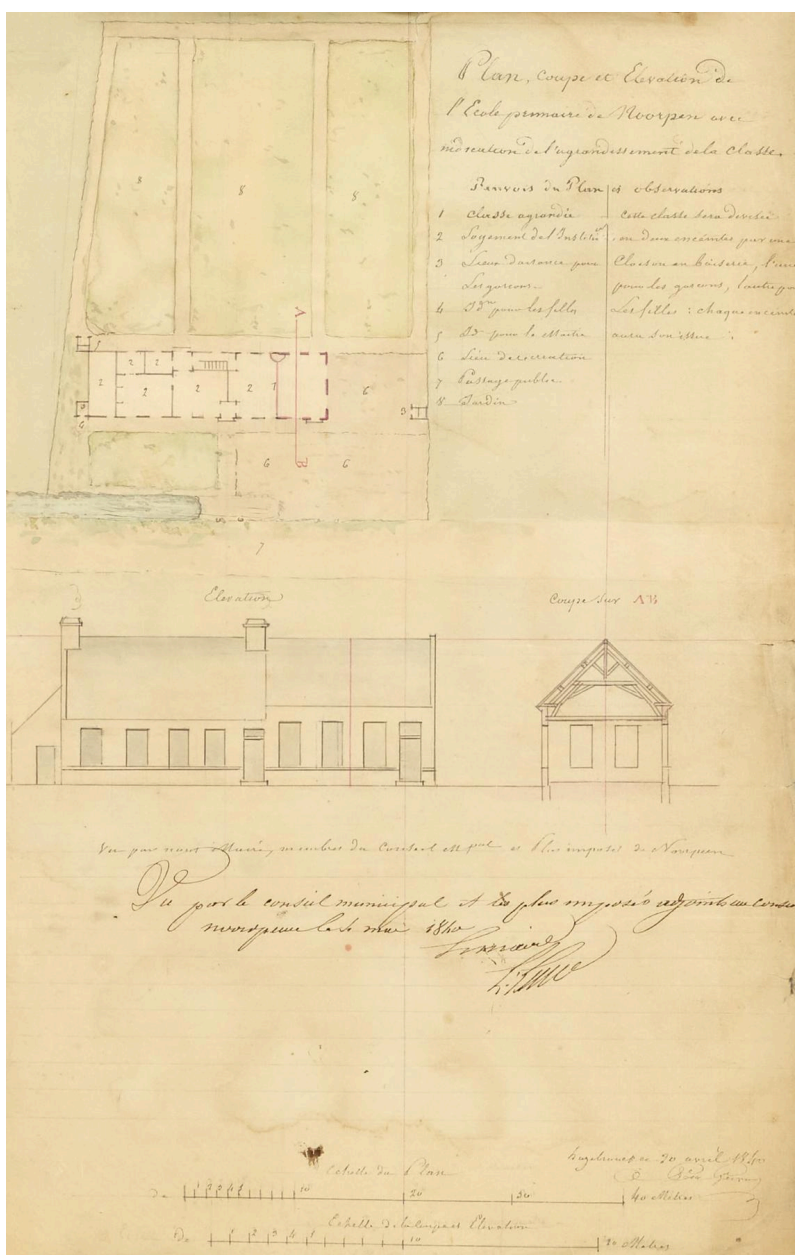 Plan, Coupe et Elevation de
l'Ecole primaire de Noorpen avec
indication de l'agrandissement de la Classe.
Renvois du Plan et observations
1 Classe agrandie
2 Logement de l'Institr
3 Lieux d'aisance pour
Les garcons.
4 Idm pour les filles
5 Id pour le Maitre
6 Lieu de recreation
7 Passage public
8 Jardin
Cette classe sera divisée
en deux enceintes par une
Cloison en boiserie, l'une
pour les garcons, l'autre
Les filles : chaque enceinte
aura son issue
8
8
8
5
A
2
2
2
2
2
2
1
6
3
6
B
6
6
7
Elevation
Coupe sur AB
Vu par nous Maire, membres du Conseil Mpal et Plus imposés de Noorpeen
Vu par le conseil municipal et les plus imposés adjoints au
noordpeene le mai 1840
Hazebrouck le 30 avril 1840
Echelle du Plan
1 2 3 4 5 10 20 30 40 Metres
Echelle de la coupe et Elevation
1 2 3 4 5 10 20 Metres